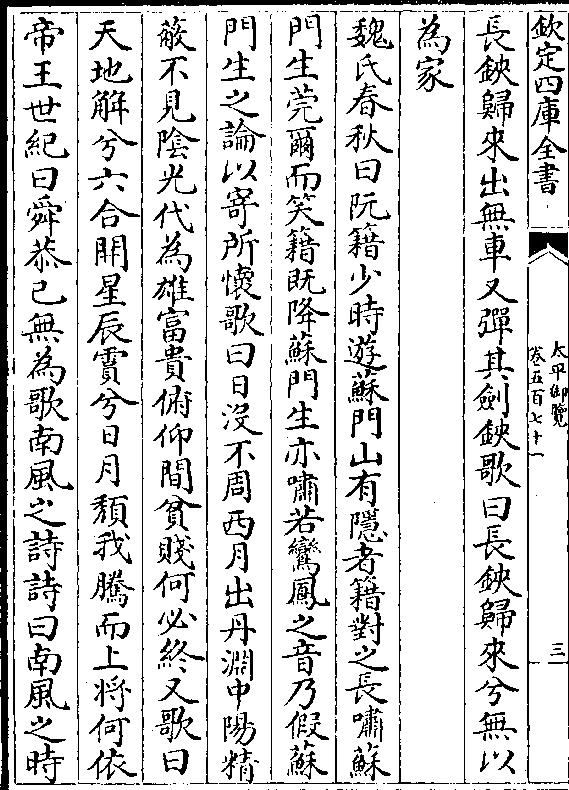 欽定四庫全書
太平御覽
卷五百七十一
三
長鋏歸來出無車又彈其劍鋏歌曰長鋏歸來兮無以
為家
魏氏春秋曰阮籍少時遊蘇門山有隱者籍對之長嘯蘇
門生莞爾而笑籍既降蘇門生亦嘯若鸞鳳之音乃假蘇
門生之論以寄所懷歌曰日沒不周西月出丹淵中陽精
蔽不見陰光代為雄富貴俯仰間貧賤何必終又歌曰
天地解兮六合開星辰霣兮日月頹我騰而上將何依
帝王世紀曰舜恭己無為歌南風之詩詩曰南風之時